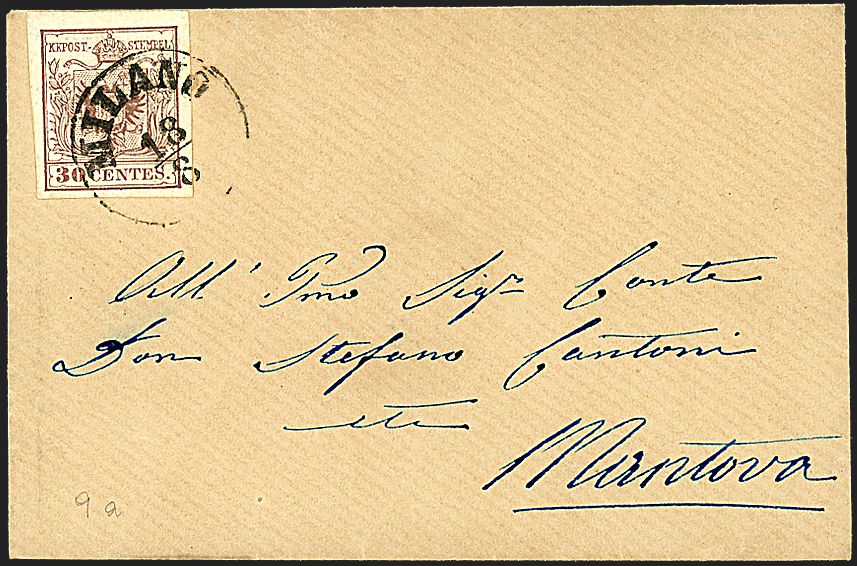 KKPOST-STEMPEL
30 CENTES.
MILANO
18
8
All' Imo Sigr Conte
Don Stefano Cantoni
etc
Mantova
9 a